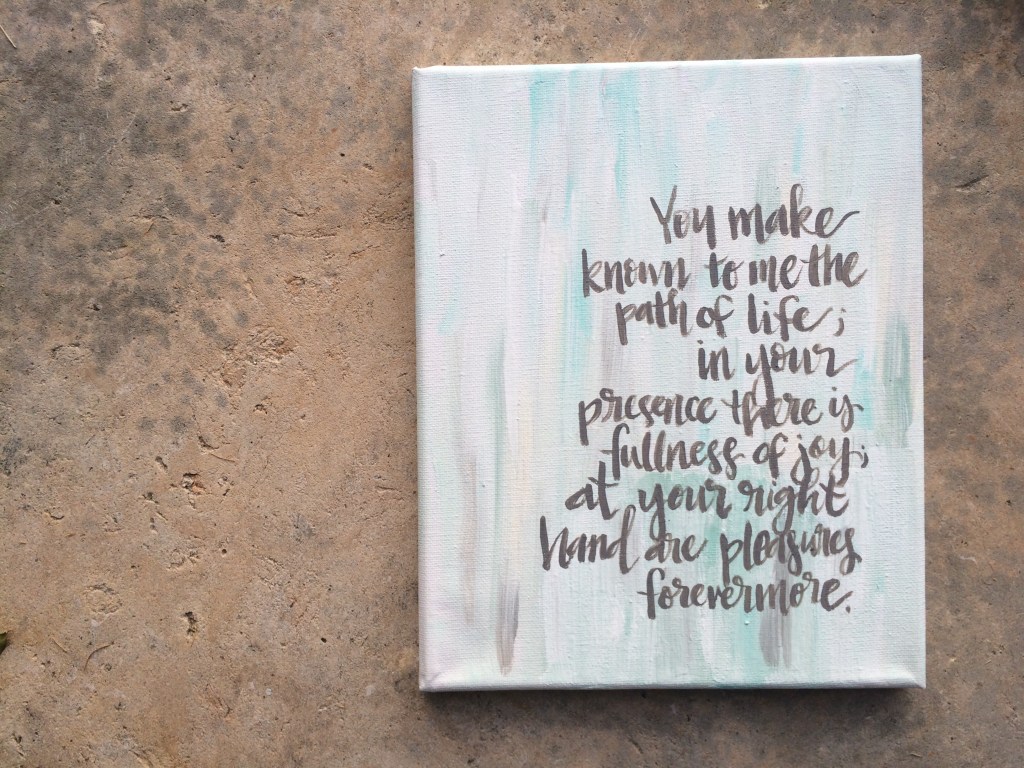 You make
known to me the
path of life;
in your
presence there is
fullness of joy;
at your right
hand are pleasures
forevermore.